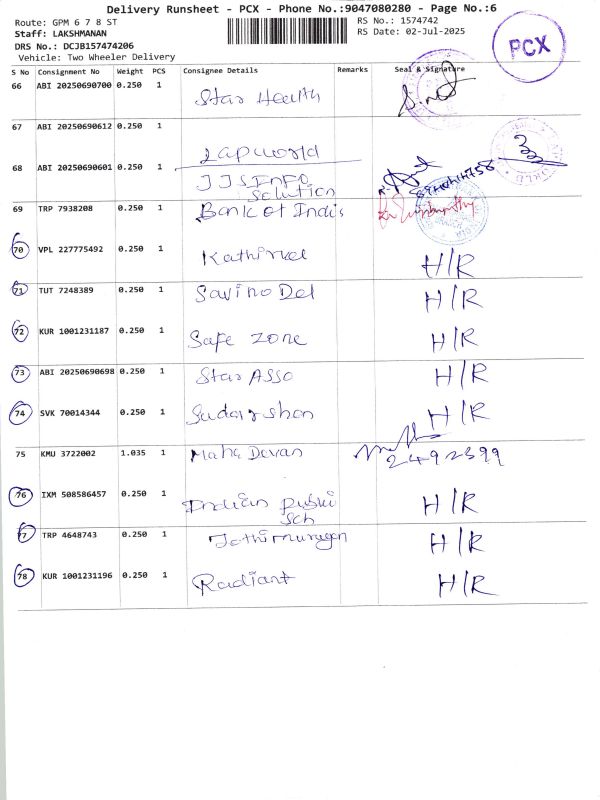 Delivery Runsheet - PCX - Phone No.:9047080280 - Page No.:6
Route: GPM 6 7 8 ST RS No.: 1574742
Staff: LAKSHMANAN RS Date: 02-Jul-2025
DRS No.: DCJB157474206
Vehicle: Two Wheeler Delivery
PCX
S No Consignment No Weight PCS Consignee Details Remarks Seal & Signature
66 ABI 20250690700 0.250 1 Star Health
67 ABI 20250690612 0.250 1 Lapworld
68 ABI 20250690601 0.250 1 JJS Info
Solution
69 TRP 7938208 0.250 1 Bank of Indis
70 VPL 227775492 0.250 1 Kathirvel H/R
71 TUT 7248389 0.250 1 Savino Del H/R
72 KUR 1001231187 0.250 1 Safe Zone H/R
73 ABI 20250690698 0.250 1 Star ASSO H/R
74 SVK 70014344 0.250 1 Sudarshan H/R
75 KMU 3722002 1.035 1 Maha Devan 2492399
76 IXM 508586457 0.250 1 Indian Publi H/R
Sch
77 TRP 4648743 0.250 1 Jothimurugan H/R
78 KUR 1001231196 0.250 1 Radiant H/R